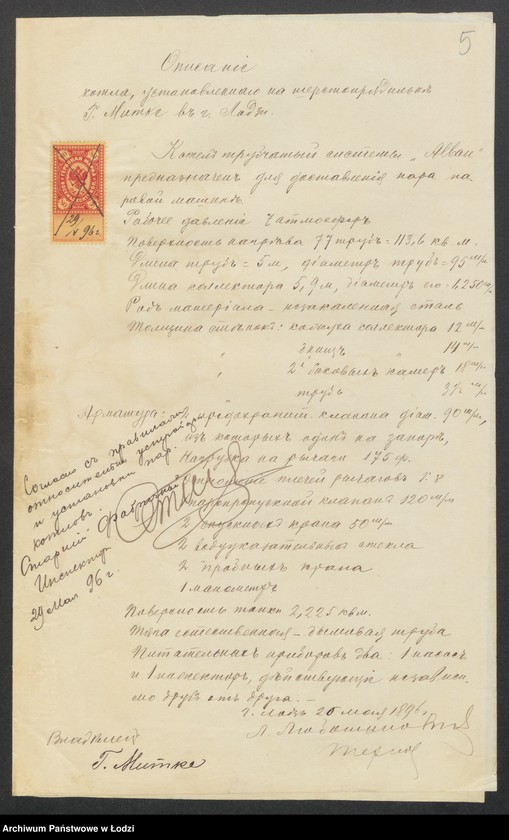 5
Описанiе
котла, установленнаго на шерстопрядильнѣ
Г. Митке въ г. Лодзи.
Котелъ трубчатый системы „Alban"
предназначенъ для доставленiя пара па
ровой машинѣ
Рабочее давленiе 7 атмосферъ
Поверхность нагрѣва 77 трубъ = 113,6 кв. м.
Длина трубъ = 5 м, дiаметръ трубъ = 95 m/m
Длина коллектора 5,9 м, дiаметръ его 1250 m/m
Родъ матерiала – незакаленная сталь
Толщина стѣнокъ: кожуха коллектора 12 m/m
" днищъ " 14 m/m
2х боковыхъ камеръ 18 m/m
трубъ 3½ m/m
Арматура: 2 предохрани. клапана дiам. 90 m/m,
изъ которыхъ одинъ на запорѣ,
Нагрузка на рычаги 175 ф.
Отношенiе плечей рычаговъ 1:8
Паропропускной клапанъ 120 m/m
2 спускныхъ крана 50 m/m
2 водоуказательныхъ стекла
2 пробныхъ крана
1 манометръ
Поверхность топки 2,225 кв м.
Тяга естественная – дымовая труба
Питательныхъ приборовъ два: 1 насосъ
и 1 инжекторъ, дѣйствующiе независи
мо другъ отъ друга. –
г. Лодзь 20 мая 1896 г.
Владѣлецъ
Г. Митке
Согласно съ правилами
относительно устройства
и установки пар.
котловъ.
Старшiй Фабричный
Инспекторъ
29 Мая 96 г.
29/V 96 г.
Archiwum Państwowe w Łodzi